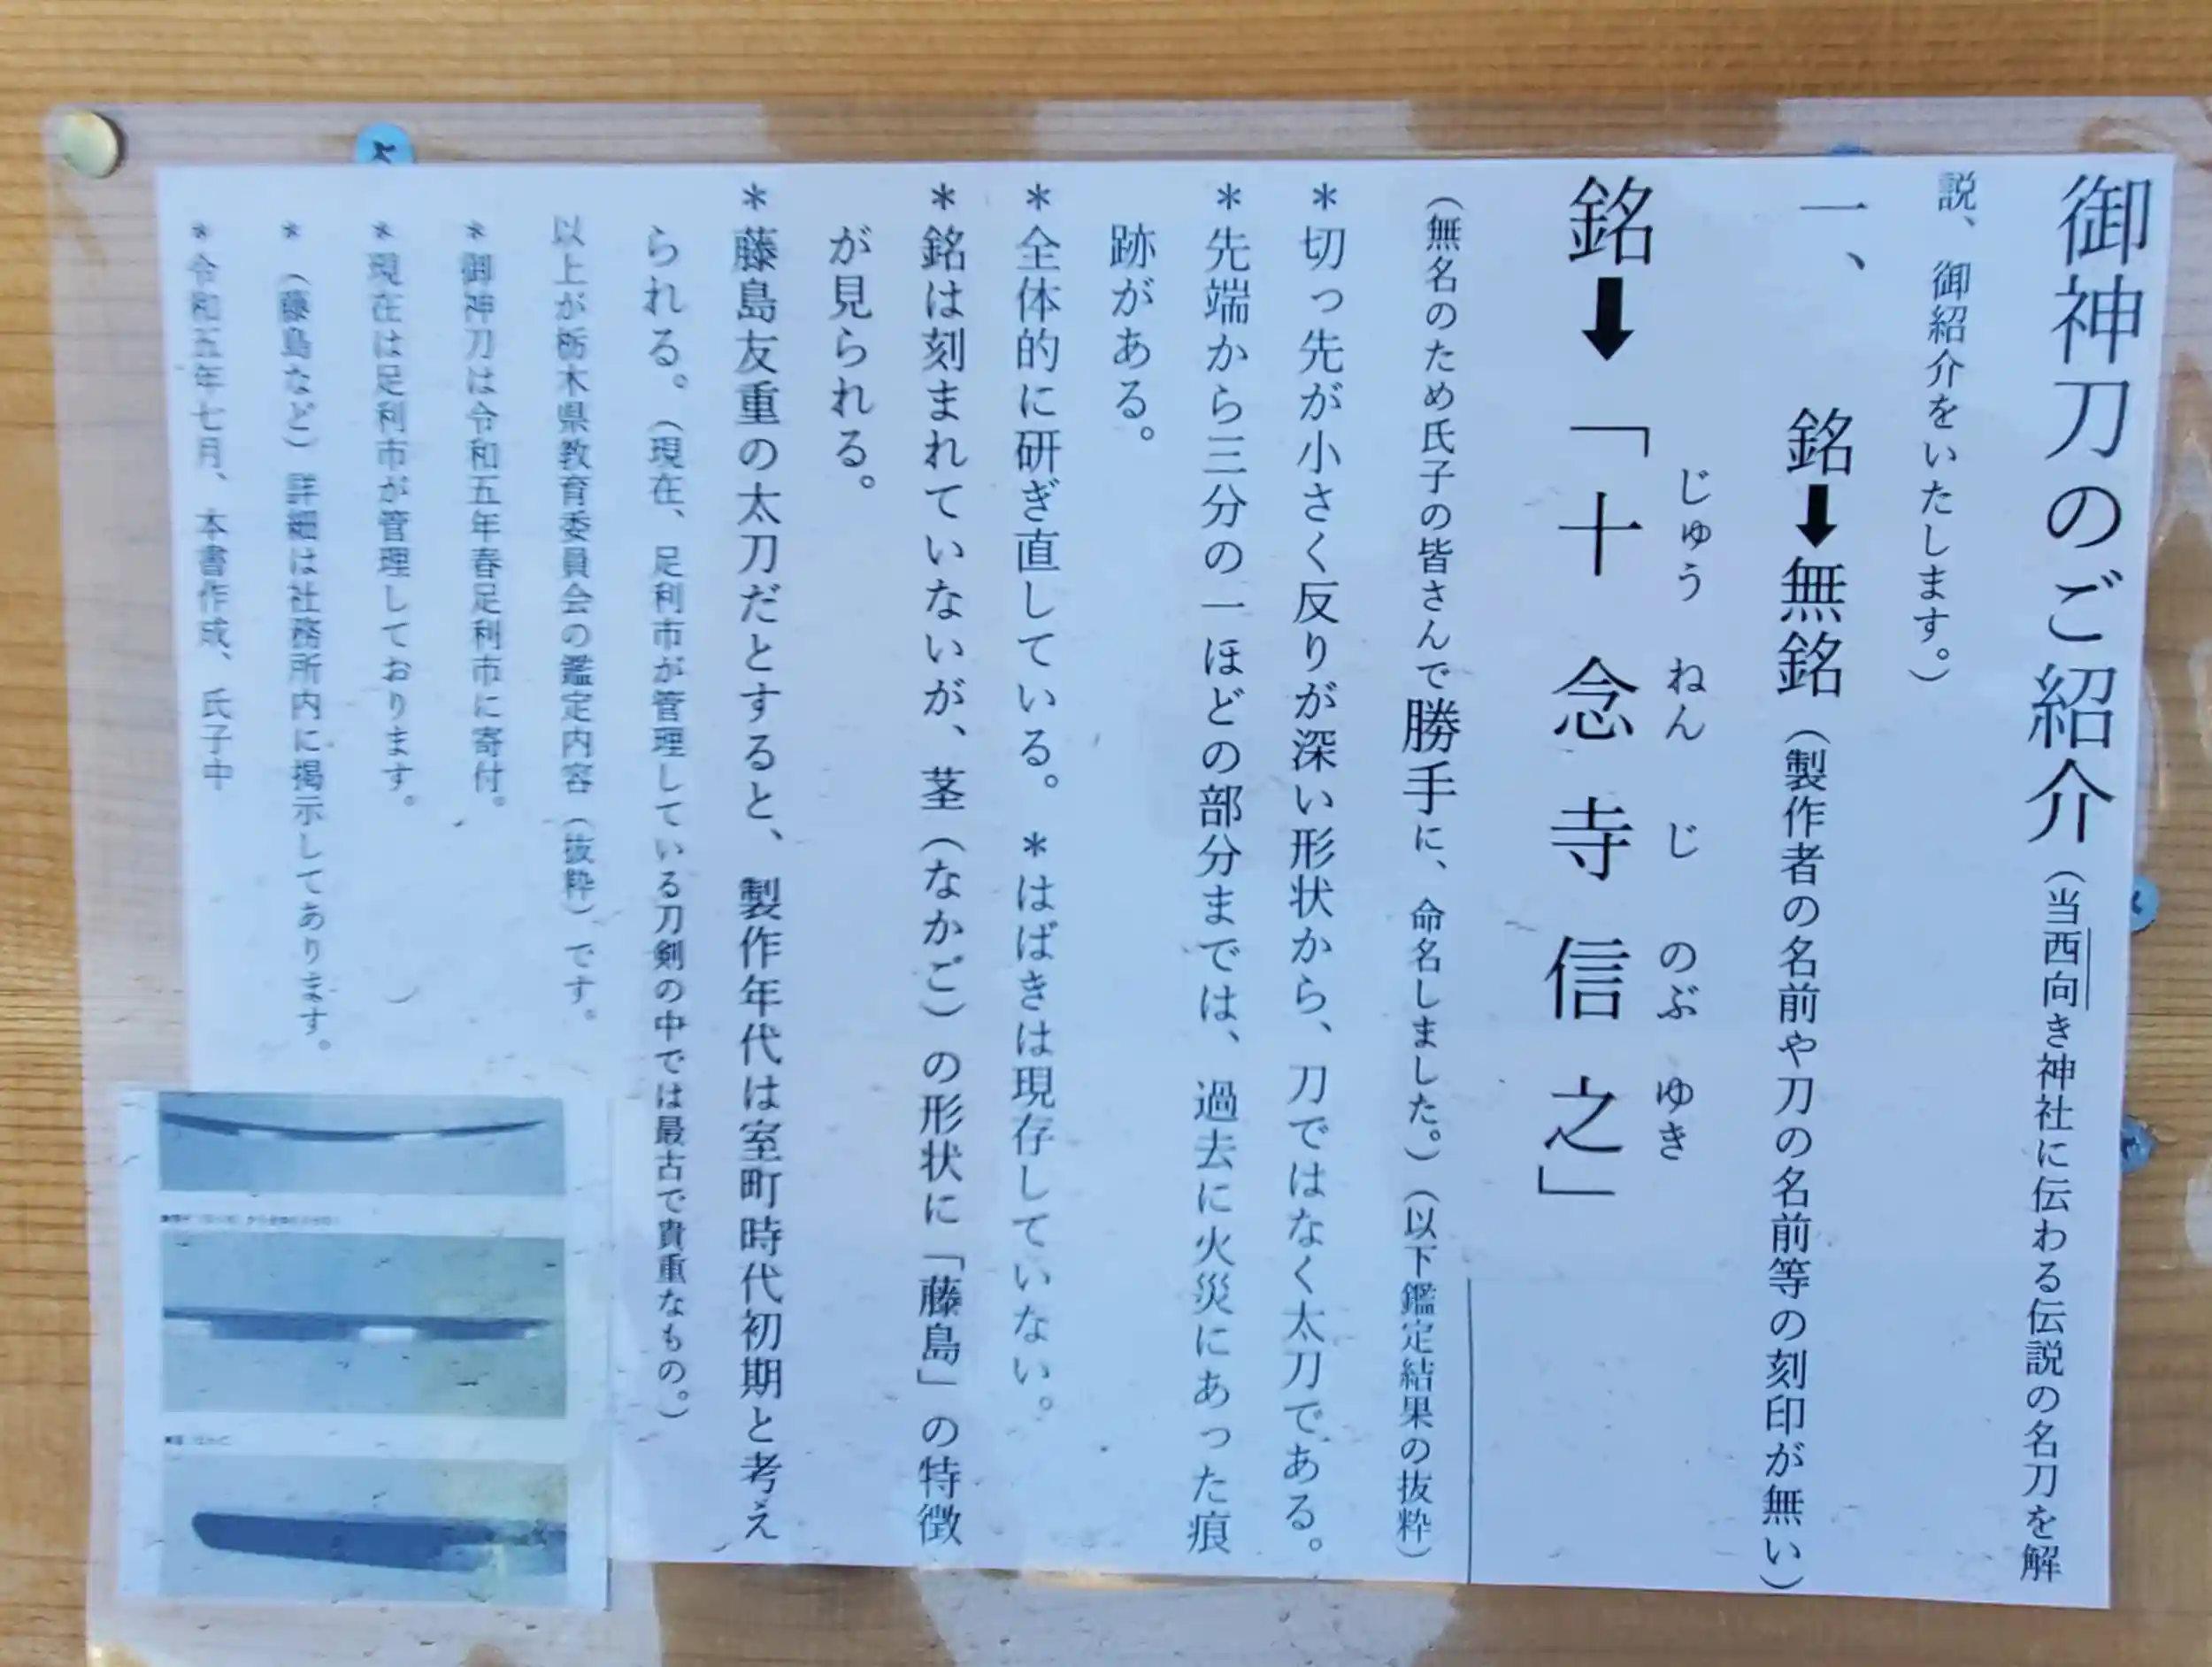 御神刀のご紹介（当西向き神社に伝わる伝説の名刀を解
説、御紹介をいたします。）
一、 銘➡無銘（製作者の名前や刀の名前等の刻印が無い）
じゅう ねん じ のぶ ゆき
銘➡「十念寺信之」
（無名のため氏子の皆さんで勝手に、命名しました。）（以下鑑定結果の抜粋）
＊切っ先が小さく反りが深い形状から、刀ではなく太刀である。
＊先端から三分の一ほどの部分までは、過去に火災にあった痕
跡がある。
＊全体的に研ぎ直している。 ＊はばきは現存していない。
＊銘は刻まれていないが、茎（なかご）の形状に「藤島」の特徴
が見られる。
＊藤島友重の太刀だとすると、製作年代は室町時代初期と考え
られる。（現在、足利市が管理している刀剣の中では最古で貴重なもの。）
以上が栃木県教育委員会の鑑定内容（抜粋）です。
＊御神刀は令和五年春足利市に寄付。
＊現在は足利市が管理しております。 ）
＊（藤島など）詳細は社務所内に掲示してあります。
＊令和五年七月、本書作成、氏子中